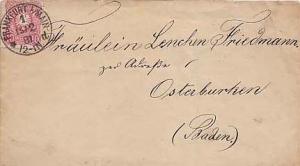 FRANKFURT A/MAIN
1
12-1N
Fräulein Lenchen Friedmann
zur Adreße
Osterburken
(Baden)